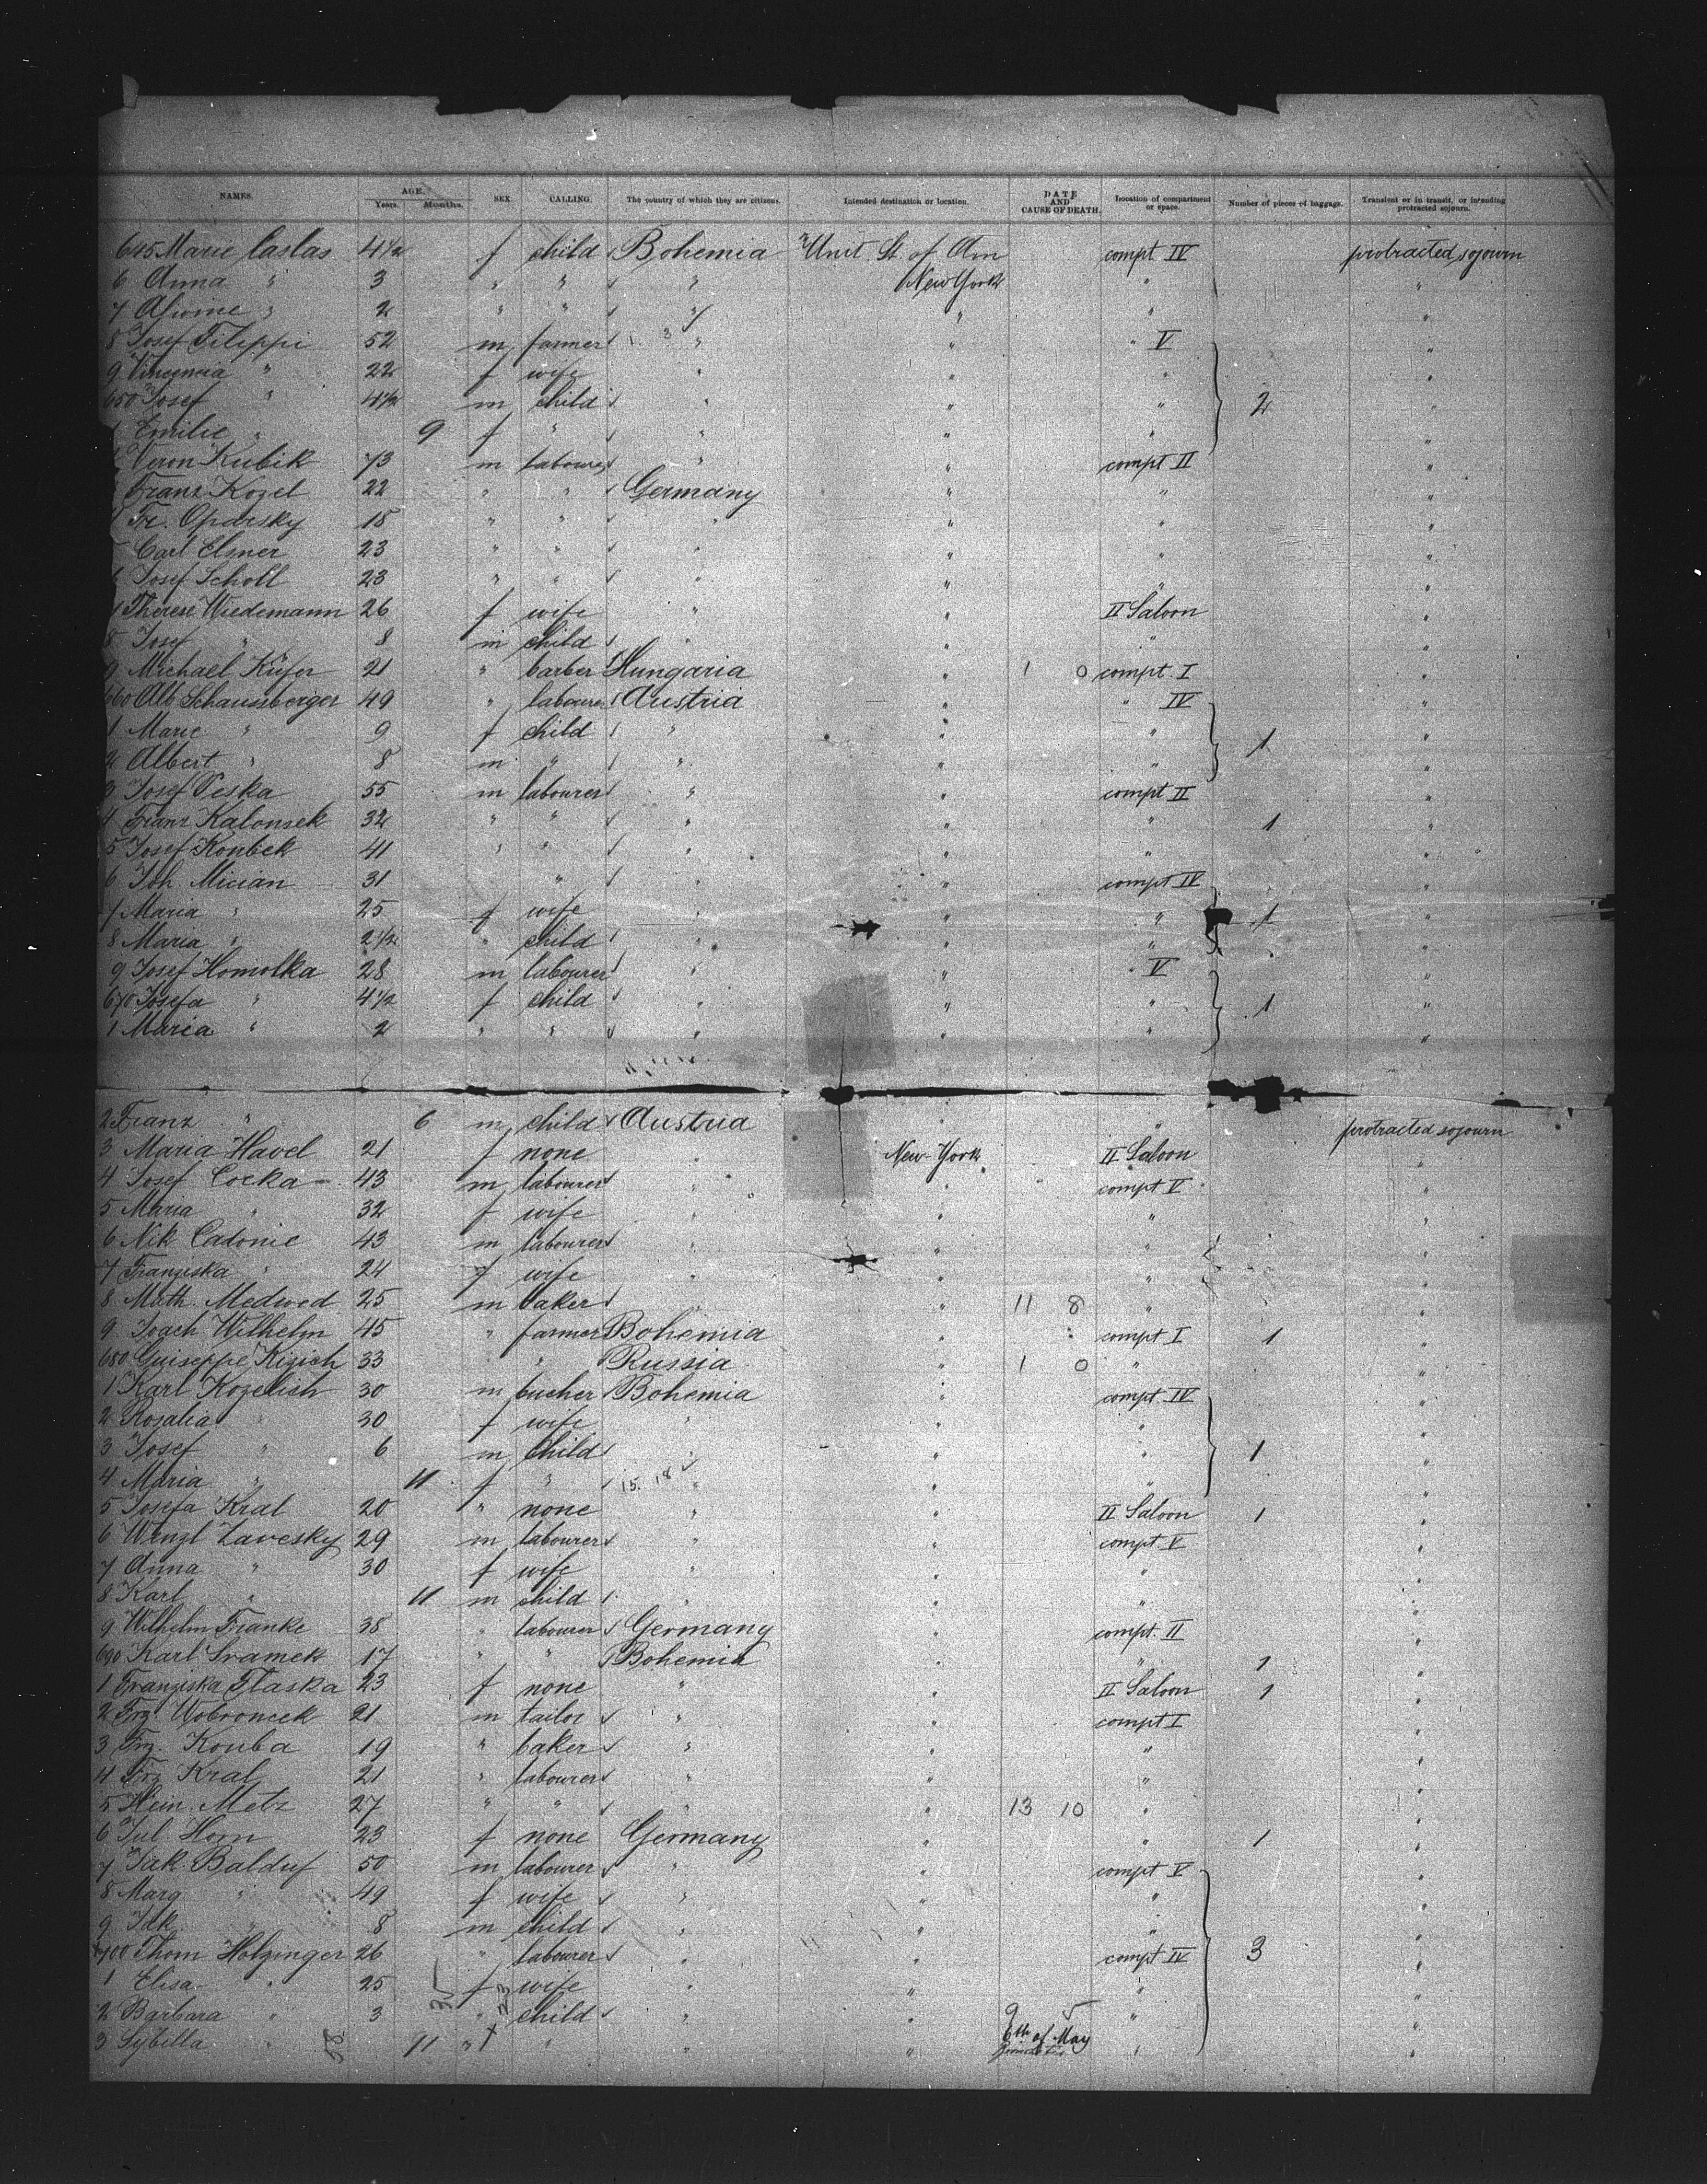 NAMES. AGE. Years. Months. SEX CALLING. The country of which they are citizens. Intended destination or location. DATE AND CAUSE OF DEATH. Location of compartment or space. Number of pieces of baggage. Transient or in transit, or intending protracted sojourn.
645 Marie Caslas 4½ f child Bohemia Unit. St. of Am compt IV protracted sojourn
6 Anna " 3 " " " New York " "
7 " 2 " " " " " "
8 Josef Filippi 52 m farmer " " " V "
9 " 22 f wife " " " "
650 Josef " 4½ m child " " " 2 "
Emilie " 9 f " " " " "
Veron Kubik 73 m labourer " " compt II "
Franz Kozel 22 " " Germany " " "
Fr. Oparsky 15 " " " " " "
Carl Elsner 23 " " " " " "
Josef Scholl 23 " " " " " "
7 Therese Wiedemann 26 f wife " " II Saloon "
8 Josef " 8 m child " " " "
9 Michael Küfer 21 " barber Hungaria " 1 0 compt I "
660 Alb Schaussberger 49 " labourer Austria " " IV "
1 Marie " 9 f child " " " 1 "
2 Albert " 8 m " " " " "
3 Josef Peska 55 m labourer " " compt II "
4 Franz Kalonsek 32 " " " " " 1 "
5 Josef Koubek 41 " " " " " "
6 Joh. Mician 31 " " " compt IV "
7 Maria " 25 f wife " " " 1 "
8 Maria " 2½ " child " " " "
9 Josef Homolka 28 m labourer " " " V "
670 Josefa " 4½ f child " " " 1 "
1 Maria " 2 " " " " " "
2 Franz " 6 m child Austria " " protracted sojourn
3 Maria Havel 21 f none " New-York II Saloon "
4 Josef Cocka 43 m labourer " " compt V "
5 Maria " 32 f wife " " " "
6 Nik Cadonic 43 m labourer " " " "
7 Franziska " 24 f wife " " " "
8 Math. Medwed 25 m baker " 11 8 " "
9 Joach Wilhelm 45 " farmer Bohemia " compt I 1 "
680 Guiseppe Kizich 33 " Russia " 1 0 " "
1 Karl Kozelich 30 m bucher Bohemia " compt IV "
2 Rosalia " 30 f wife " " " "
3 Josef " 6 m child " " " 1 "
4 Maria " 11 f " 15. 18 " " " "
5 Josefa Kral 20 " none " " II Saloon 1 "
6 Wenzl Zavesky 29 m labourer " " compt V "
7 Anna " 30 f wife " " " "
8 Karl " 11 m child " " " "
9 Wilhelm Franke 38 " labourer Germany " compt. II "
690 Karl Sramek 17 " " Bohemia " " 1 "
1 Franziska Flaska 23 f none " " II Saloon 1 "
2 Frz. Wobroncek 21 m tailor " " compt I "
3 Frz. Kouba 19 " baker " " " "
4 Frz Kral 21 " labourer " " " "
5 Hein. Metz 27 " " " " 13 10 " "
6 Jul Horn 23 f none Germany " " 1 "
7 Jak. Balduf 50 m labourer " " compt V "
8 Marg " 49 f wife " " " "
9 Jak. " 8 m child " " " "
700 Thom Holzinger 26 " labourer " " compt IV 3 "
1 Elisa " 25 f wife " " " "
2 Barbara " 3 " child " " 9 5 " "
3 Sybilla " 11 " " " " 6th of May " "